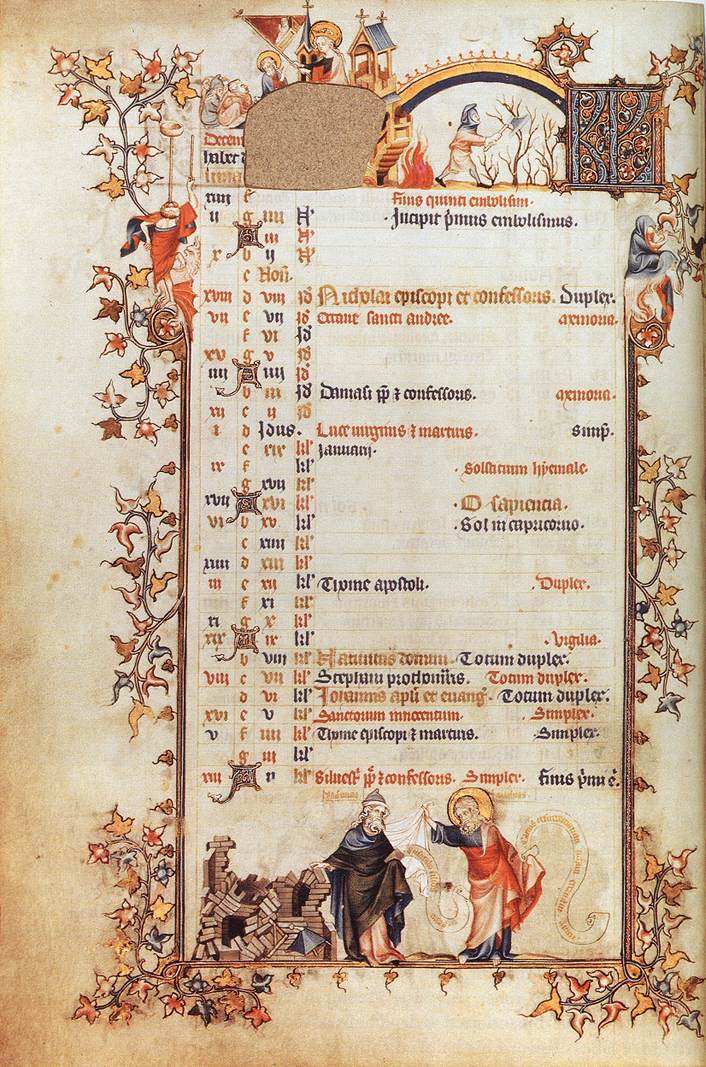 Decem
habet
luna
xiiij f finis quinti embolismi.
ij g iiij N Incipit primus embolismus.
A iij N
x b ij N
c Non.
xviij d viij Id Nicholai episcopi et confessoris. Duplex.
vij e vij Id Octave sancti andree. memoria.
f vi Id
xv g v Id
iiij A iiij Id
b iij Id Damasi pp & confessoris. memoria.
xij c ij Id
i d Idus. Lucie virginis & martiris. simp.
e xix kl' Januarij.
ix f kl' Solsticium hyemale.
g xvij kl'
xvij A xvi kl' O sapiencia.
vi b xv kl' Sol in capricorno.
c xiiij kl'
xiiij d xiij kl'
iij e xij kl' Thome apostoli. Duplex.
f xi kl'
xi g x kl'
xix A ix kl' Vigilia.
b viij kl' Nativitas domini. Totum duplex.
viij c vij kl' Stephani prothomris. Totum duplex.
d vi kl' Johannis apli et evang. Totum duplex.
xvi e v kl' Sanctorum innocentum. Simplex.
v f iiij kl' Thome episcopi & martiris. Simplex.
g iij kl'
xiij A ij kl' Silvestri pp & confessoris. Simplex. finis primi e.